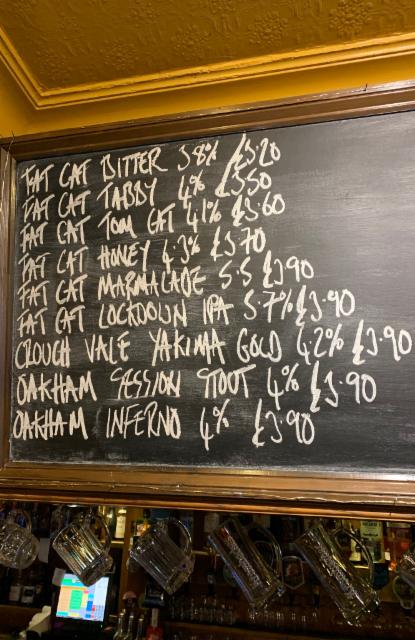 FAT CAT BITTER 3.8% £3.20
FAT CAT TABBY 4% £3.50
FAT CAT TOM CAT 4.1% £3.60
FAT CAT HONEY 4.3% £3.70
FAT CAT MARMALADE 5.5 £3.90
FAT CAT LOCKDOWN IPA 5.7% £3.90
CROUCH VALE YAKIMA GOLD 4.2% £3.90
OAKHAM SESSION STOUT 4% £3.90
OAKHAM INFERNO 4% £3.90